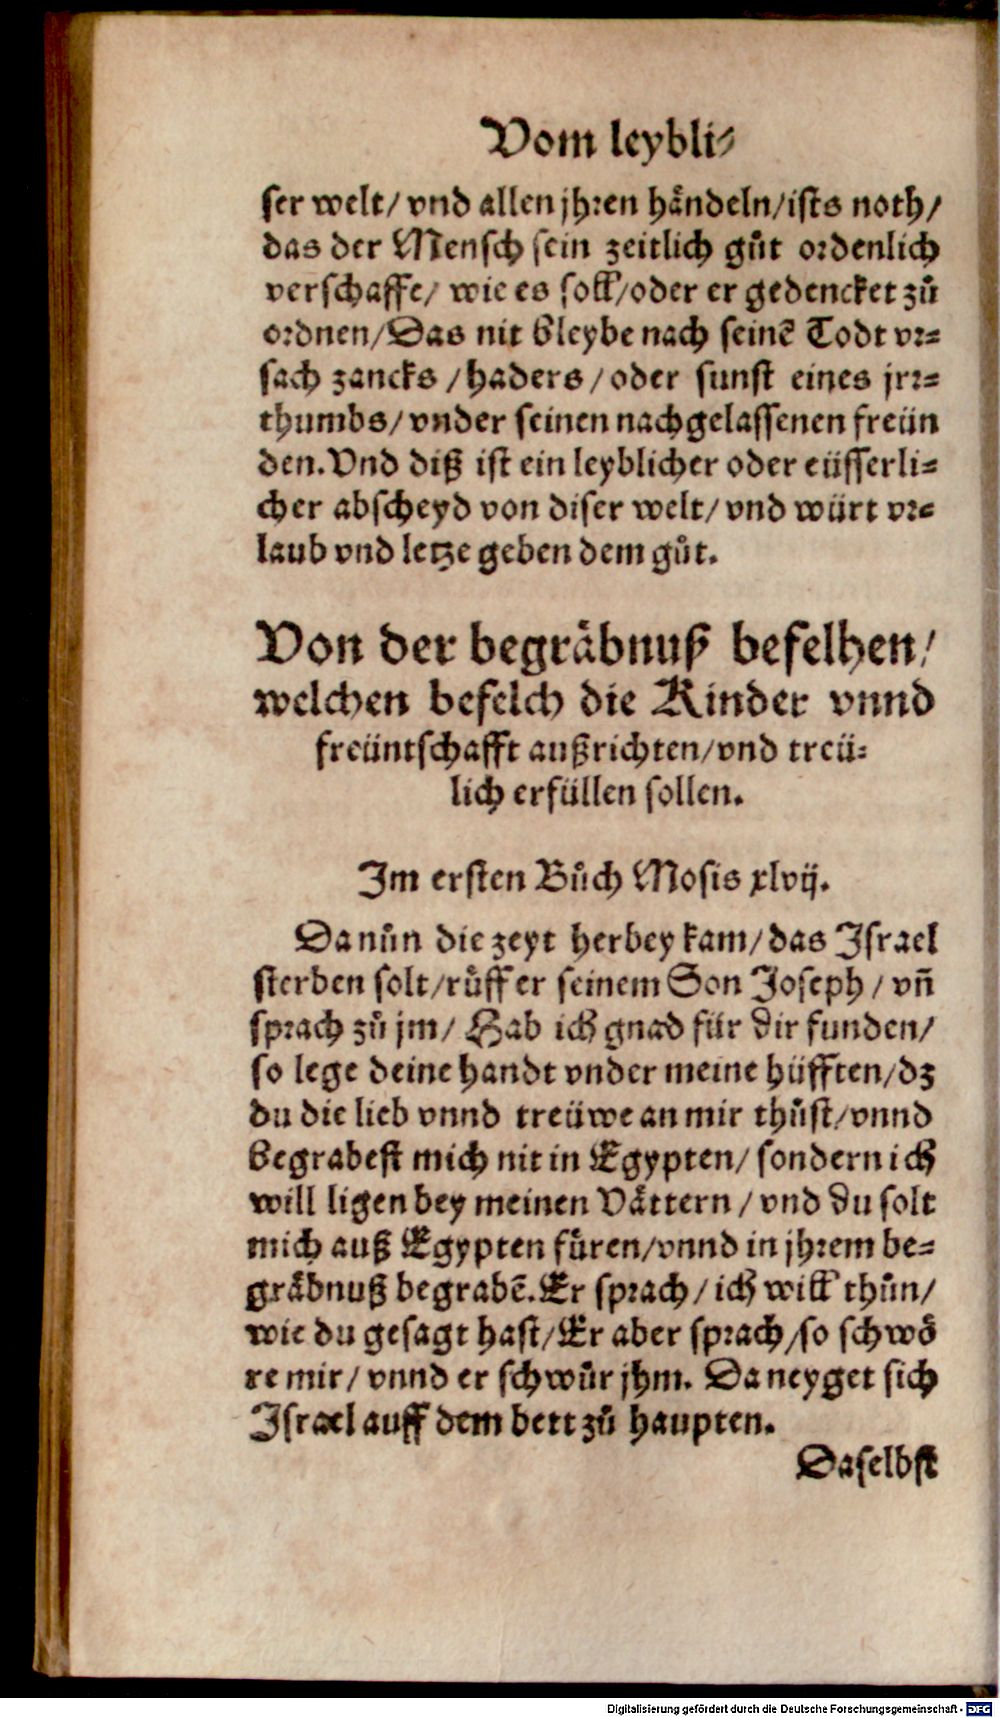 Vom leybli⸗
ser welt/ vnd allen jhren haͤndeln/ists noth/
das der Mensch sein zeitlich guͦt ordenlich
verschaffe/ wie es soll/oder er gedencket zuͦ
ordnen/Das nit bleybe nach seinē Todt vr⸗
sach zancks /haders/oder sunst eines jrr⸗
thumbs/vnder seinen nachgelassenen freün
den.Vnd diß ist ein leyblicher oder eüsserli⸗
cher abscheyd von diser welt/ vnd würt vr⸗
laub vnd letze geben dem guͦt.
Von der begraͤbnuß befelhen/
welchen befelch die Kinder vnnd
freüntschafft außrichten/vnd treü⸗
lich erfüllen sollen.
Im ersten Buͦch Mosis xlvij.
Da nuͦn die zeyt herbey kam/das Israel
sterben solt/ruͦff er seinem Son Joseph / vñ
sprach zuͦ jm/ Hab ich gnad für dir funden/
so lege deine handt vnder meine hüfften/dz
du die lieb vnnd treüwe an mir thuͦst/vnnd
begrabest mich nit in Egypten/ sondern ich
will ligen bey meinen Vaͤttern / vnd du solt
mich auß Egypten füren/vnnd in jhrem be⸗
graͤbnuß begrabē.Er sprach/ ich will thuͦn/
wie du gesagt hast/Er aber sprach/so schwoͤ
re mir/ vnnd er schwuͦr jhm. Da neyget sich
Israel auff dem bett zuͦ haupten.
Daselbst
Digitalisierung gefördert durch die Deutsche Forschungsgemeinschaft - DFG